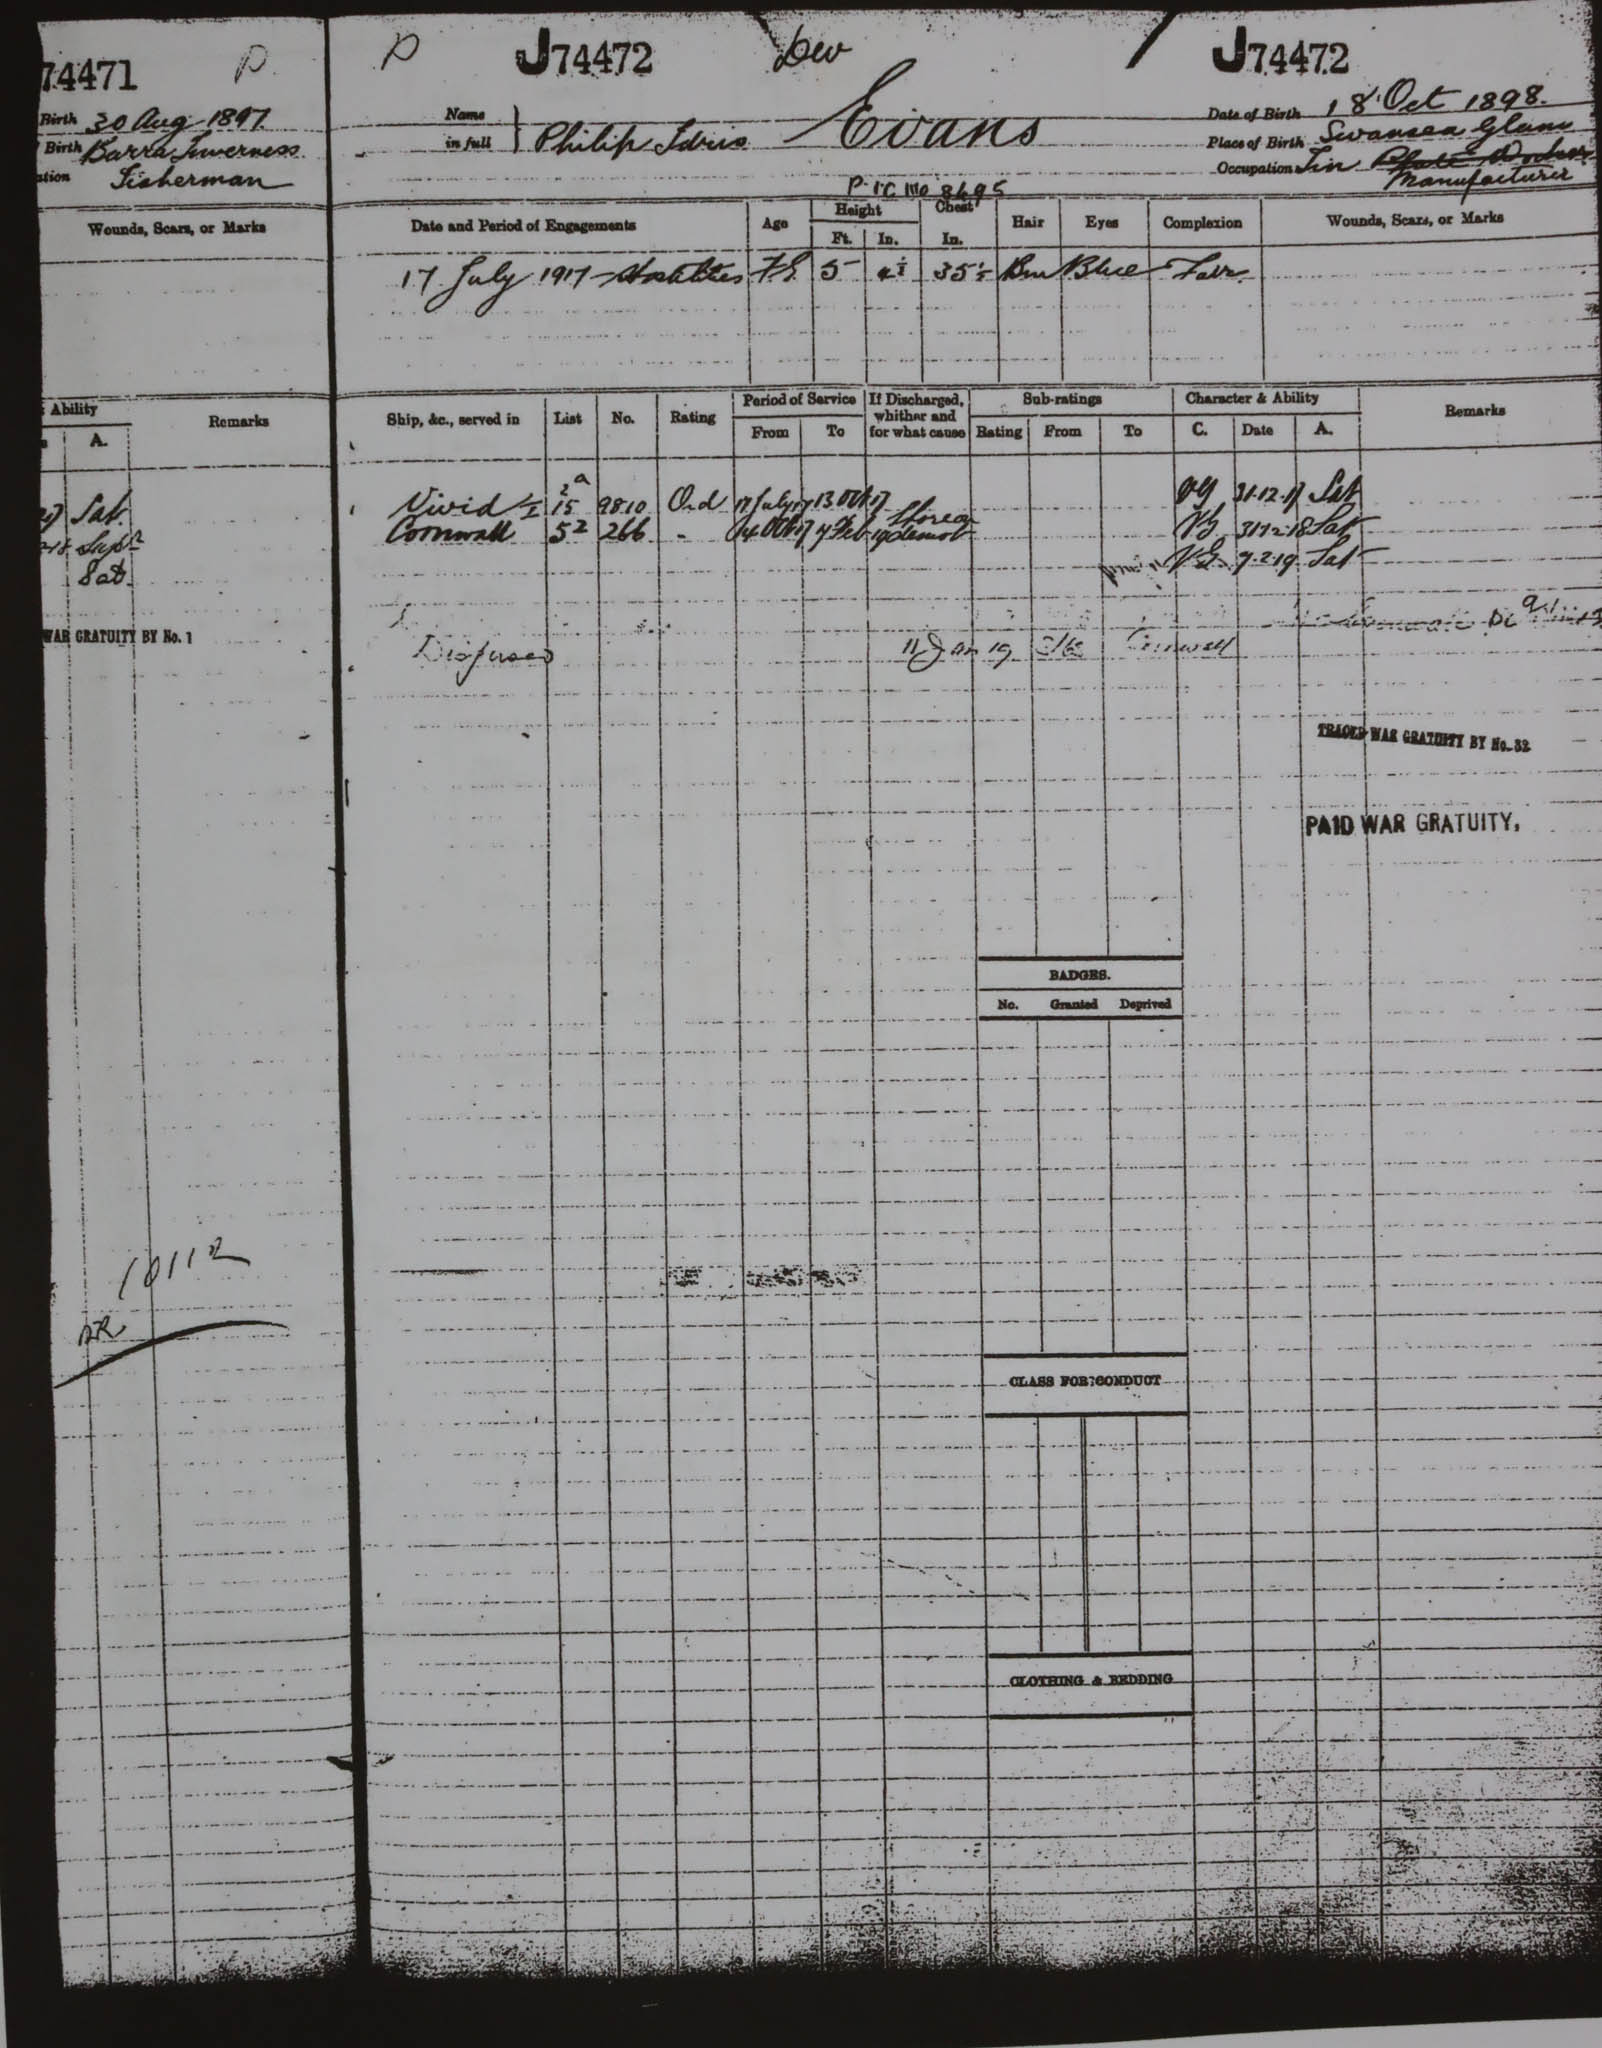 74471 P
Birth 30 Aug 1897
Birth Barra Inverness
ation Fisherman
Wounds, Scars, or Marks
Ability
A. Remarks
Sat.
Supr
Sat.
WAR GRATUITY BY No. 1
10112
P J74472 Dev J74472
Name in full Philip Idris Evans
Date of Birth 18 Oct 1898.
Place of Birth Swansea Glam
Occupation Tin Plate Worker
Manufacturer
8695
Date and Period of Engagements Age Height Ft. In. Chest In. Hair Eyes Complexion Wounds, Scars, or Marks
17 July 1917 Hostilities 5 35½ Brn Blue Fair.
Ship, &c., served in List No. Rating Period of Service From To If Discharged, whither and for what cause Sub-ratings Rating From To Character & Ability C. Date A. Remarks
Vivid I 15 2a 9810 Ord 17 July 17 13 Oct 17 VG 31.12.17 Sat
Cornwall 52 266 " 14 Oct 17 7 Feb 19 Shore demob VG 31.12.18 Sat
VG 7.2.19 Sat
Dispersed 11 Jan 19 Cornwall
TRACED WAR GRATUITY BY No. 32
PAID WAR GRATUITY,
BADGES.
No. Granted Deprived
CLASS FOR CONDUCT
CLOTHING & BEDDING